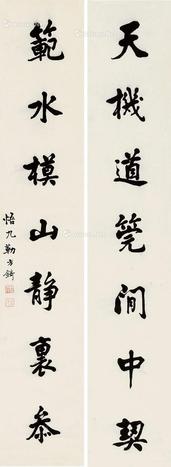 天機道筦閒中契
範水模山静裏叅
悟九勒方錡